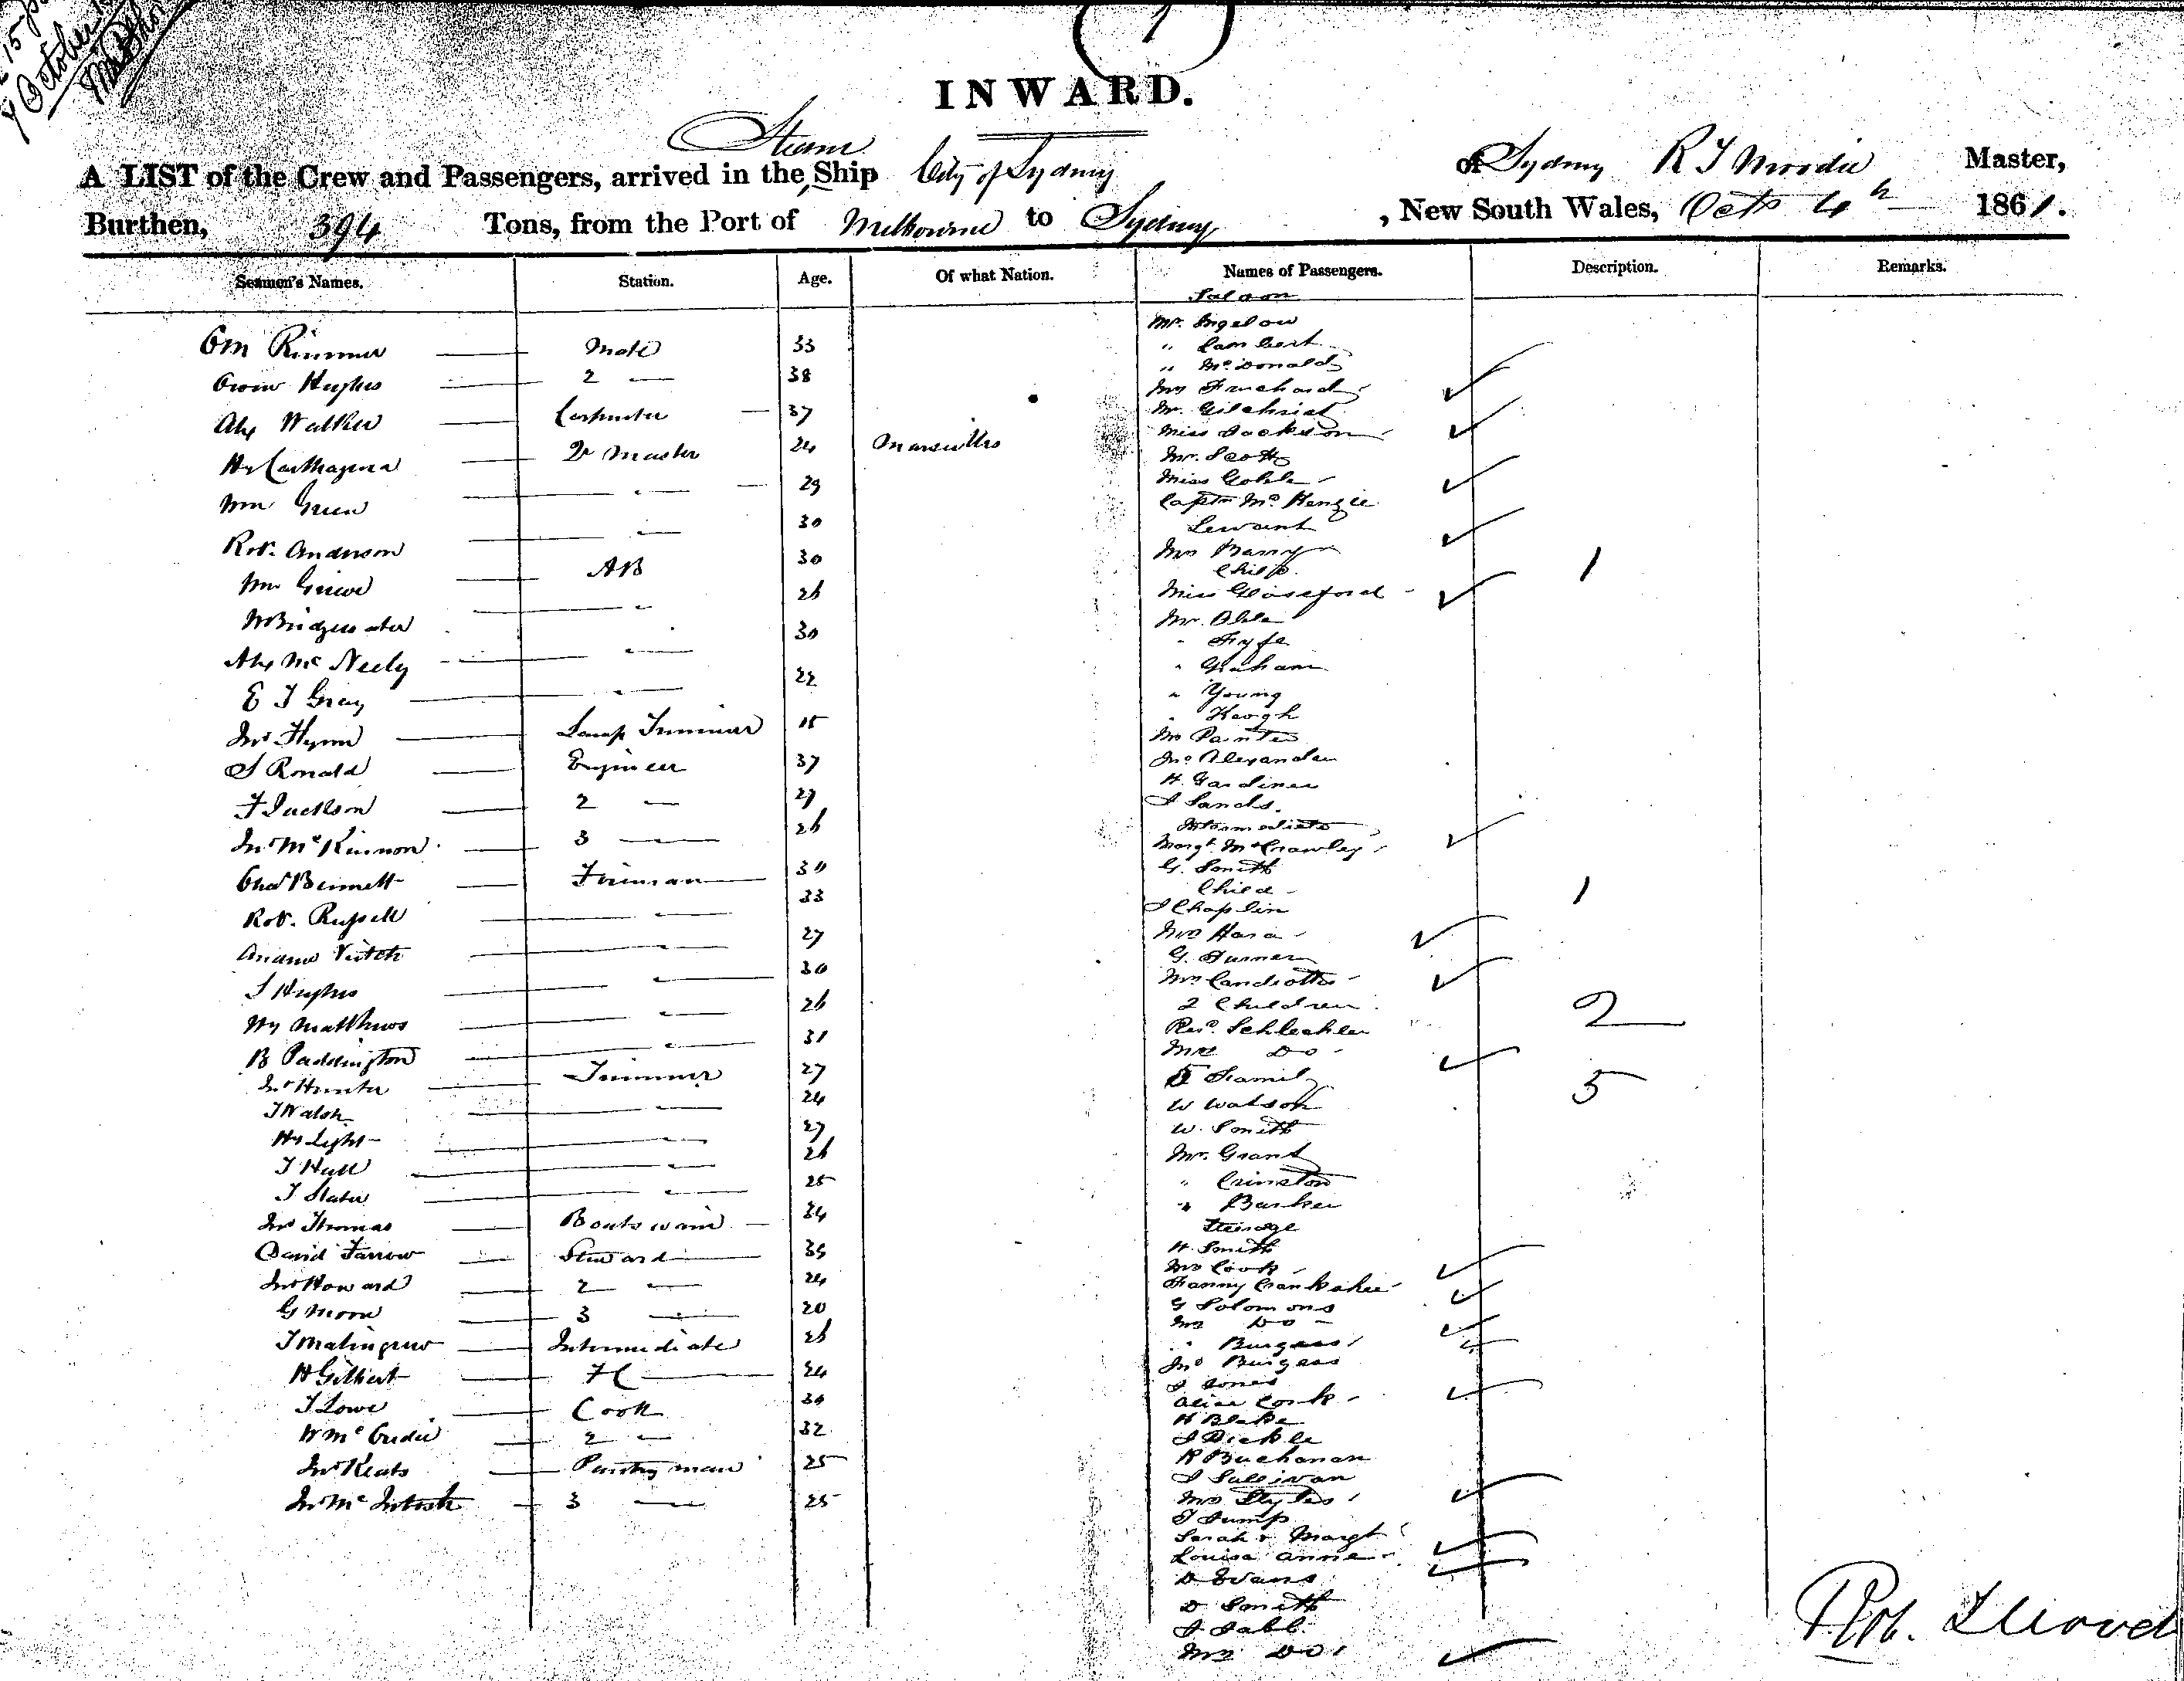 15
October
INWARD.
Steam
A LIST of the Crew and Passengers, arrived in the Ship City of Sydney of Sydney R T Moodie Master,
Burthen, 394 Tons, from the Port of Melbourne to Sydney, New South Wales, Octr 4th 1861.
Seamen's Names. Station. Age. Of what Nation. Names of Passengers. Description. Remarks.
Saloon
Mr. Ingelow
Wm Rimmer Mate 33
" Lambert
" McDonald
Owen Hughes 2 — 38
Mrs Fruchard
Alex Walker Carpenter 37
Mr. Gilchrist
Miss Jackson
Hy Carthagena Qr Master 24 Marseilles
Mr. Scott
Wm Green " 29
Miss Goble
Captn McKenzie
Servant
Robt. Anderson " 30
Mrs Barry
Child 1
Wm Grieve AB 30
Miss Glassford
W Bridgewater " 26
Mr. Able
" Fyfe
Alex McNeely " 30
" Graham
E J Gray " 22
" Young
" Keogh
Jno Flynn Lamp Trimmer 15
Mr Painter
Jno Alexander
J Ronald Engineer 37
H. Gardiner
J Sands
F Jackson 2 — 27
Intermediate
Jno McKinnon 3 — 26
Margt. McCrawley
G. Smith
Chas Bennett Fireman 30
Child 1
Robt. Russell " 33
J Chaplin
Mrs Hara
Andrew Veitch " 27
G. Turner
J Hughes " 30
Mrs Candiottis
2 Children 2
Hy Matthews " 26
Revd. Schlechler
B Paddington " 31
Mrs Do
Jno Hunter Trimmer 27
5 Family 5
J Walsh " 24
W Watson
Hy Light " 27
W. Smith
J Hall " 26
Mr. Grant
J Slater " 25
" Crinston
" Barker
Jno Thomas Boatswain 34
Steerage
David Farrow Steward 35
H. Smith
Mrs Cook
Jno Howard 2 — 24
Fanny Cranksher
G Moore 3 — 20
G Solomons
Mrs Do
J Malingrew Intermediate 26
" Burgess
Jno Burgess
H Gilbert FC 24
J Jones
J Lowe Cook 30
Alice Cork
H Blake
W McCredie 2 — 32
J Dickle
Jno Keats Pantryman 25
R Buchanan
J Sullivan
Jno McIntosh 3 — 25
Mrs Styles
T Jump
Sarah & Margt
Louisa Anne
D Evans
D Smith
J Jabb
Mrs Do